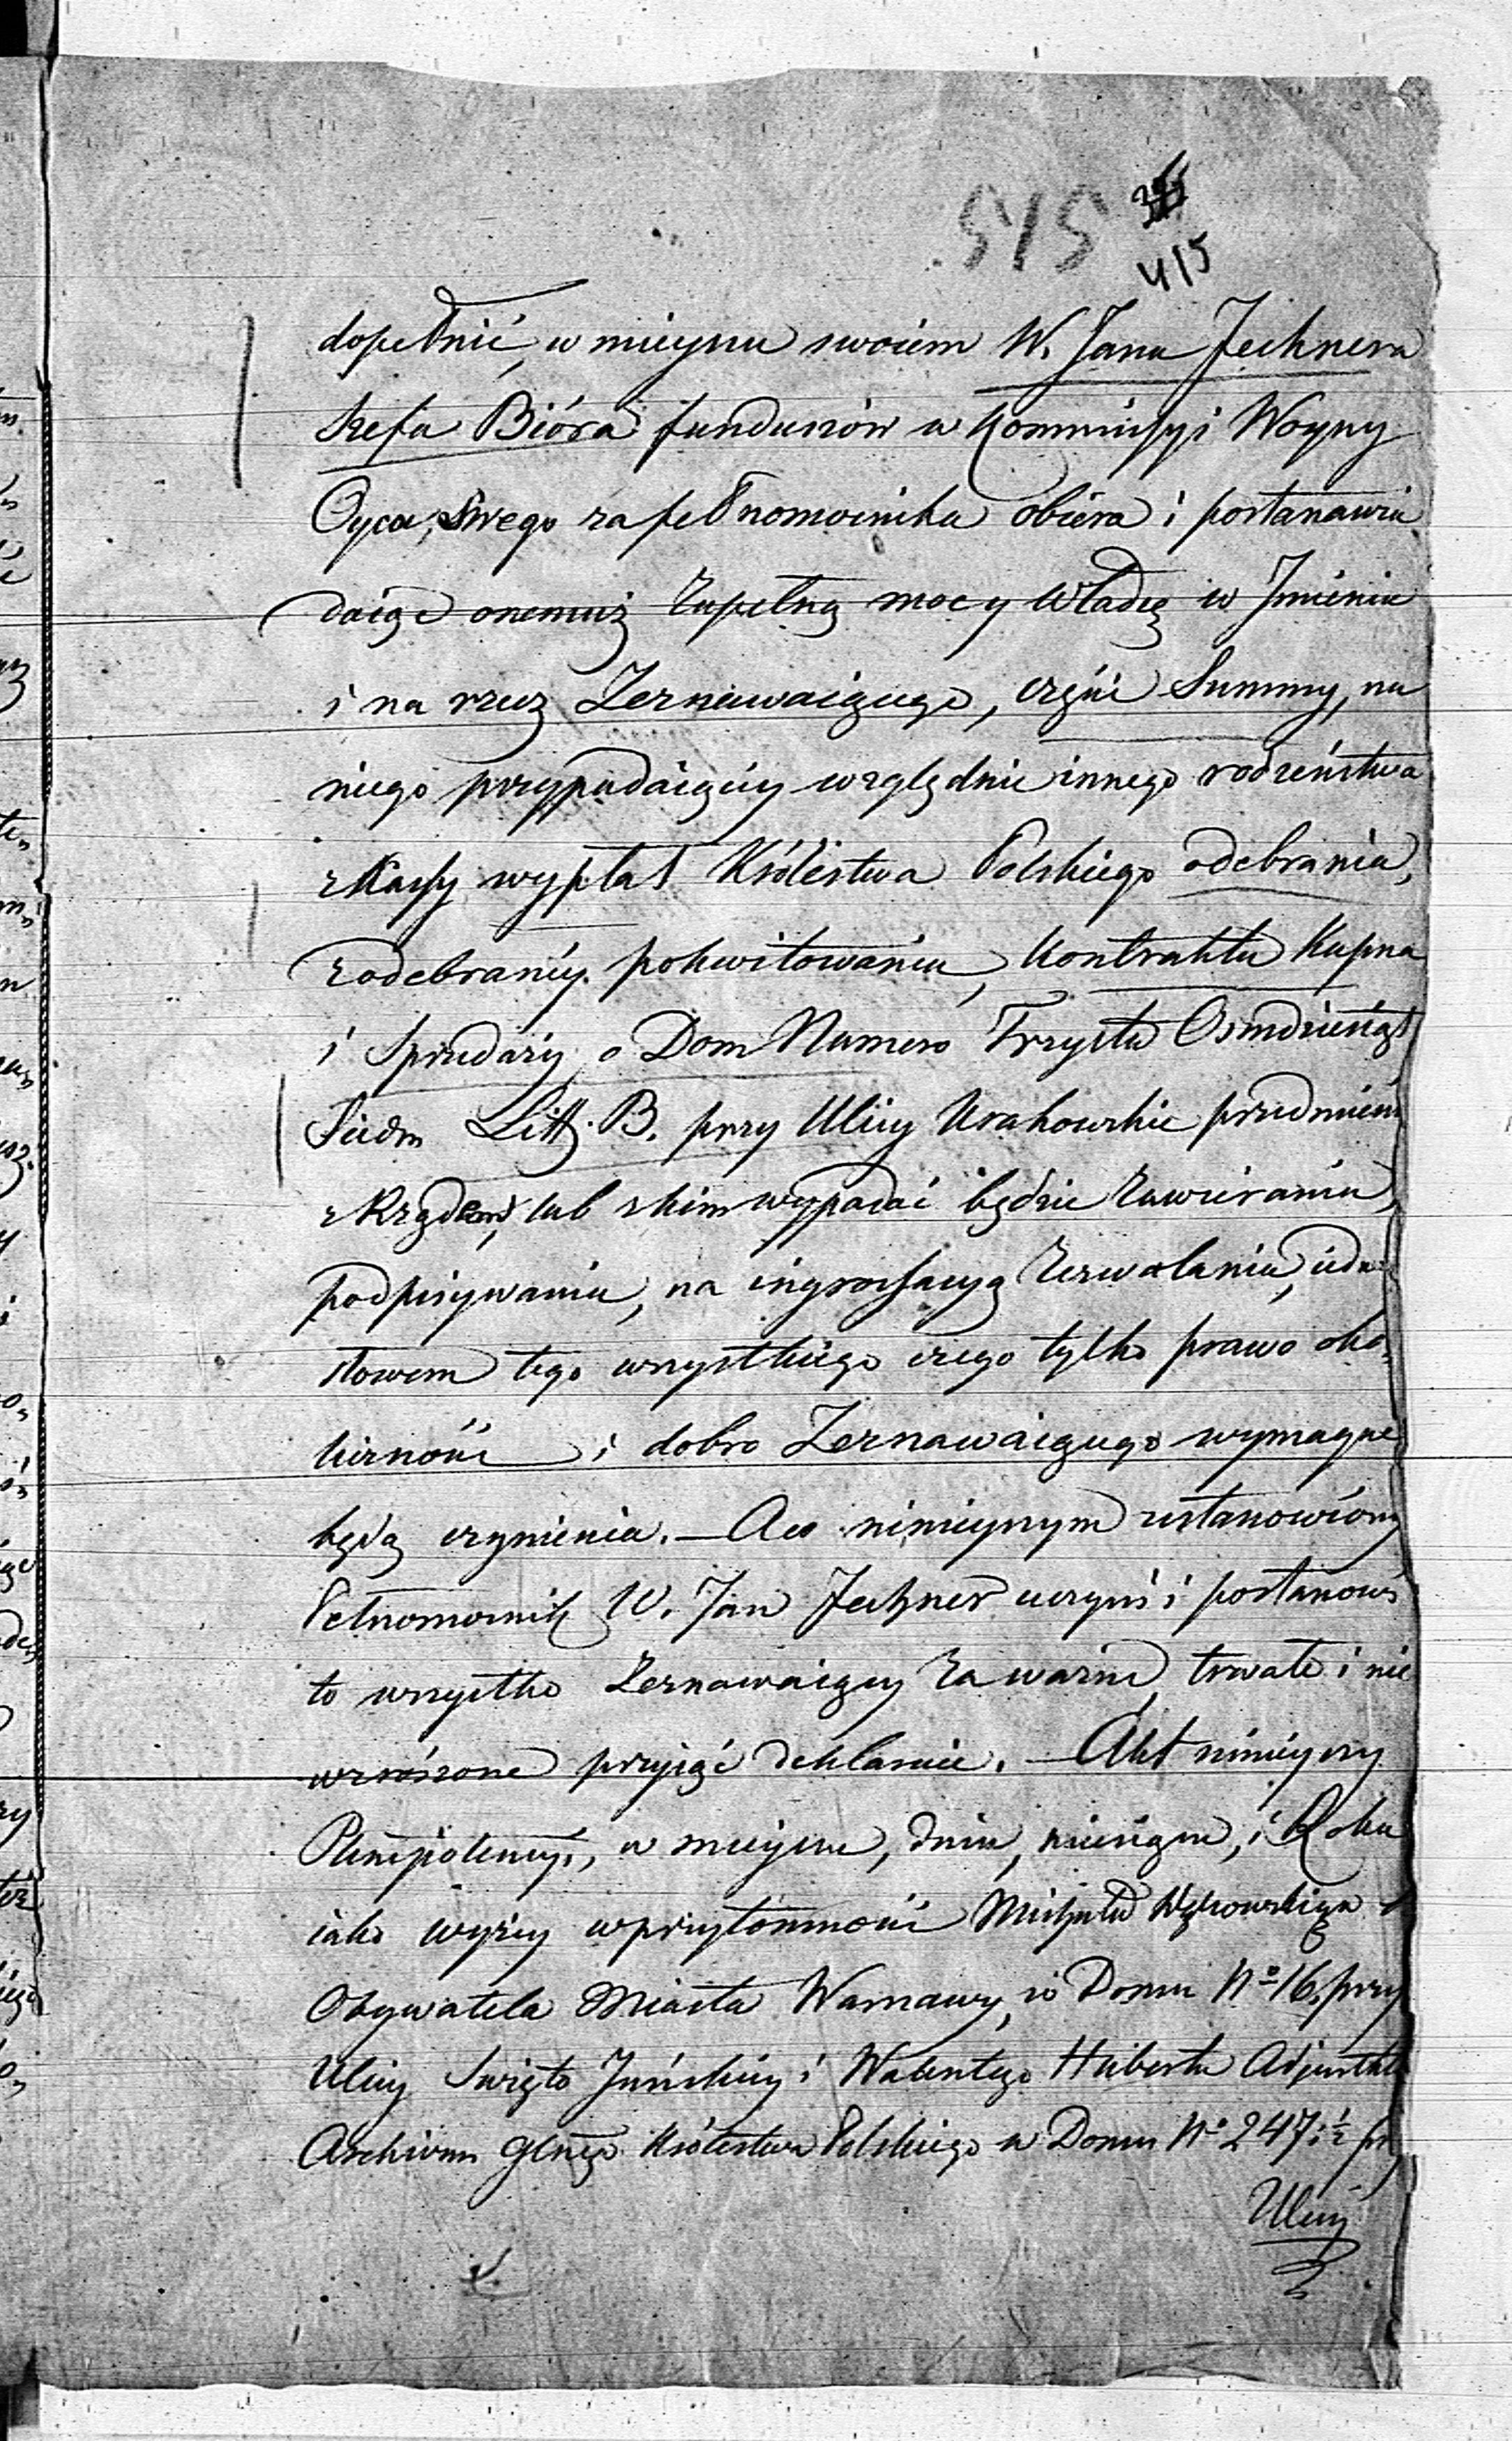 515
415
dopełnić, w mieyscu swoiem W. Jana Jechnera
Szefa Bióra funduszów w Kommissyi Woyny
Oyca, Swego za pełnomocnika obiera i postanawia
daiąc onemuż Zupełną moc y Władzę w Jmieniu
i na rzecz Zeznawaiącego, części Summy, na
niego przypadaiącey względnie innego rodzeństwa
z Kassy wypłat Królestwa Polskiego odebrania,
z odebraney pokwitowania, Kontraktu Kupna
i Sprzedaży o Dom Numero Trzysta Osmdziesiąt
Siedm Litt. B. przy Ulicy Krakowskie przedmieście
z Rządem, lub z kim wypadać będzie Zawierania,
podpisywania, na ingrossacyą Zezwolenia, iedn
słowem tego wszystkiego czego tylko prawo oko,
liczność i dobro Zeznawaiącego wymagać
będą czynienia. — A co ninieyszym ustanowiony
Pełnomocnik W. Jan Jechner uczyni i postanowi
to wszystko Zeznawaiący Za ważne, trwałe i nie
wzrószone przyiąć deklaruie. — Akt ninieyszy
Plenipotencyi, w mieyscu, dniu, miesiącu, i Roku
iako wyżey w przytomności Michała
Obywatela Miasta Warszawy, w Domu No 16. przy
Ulicy Święto Jańskiey i Walentego Huberta Adjunkta
Archiwum Głnego Królestwa Polskiego w Domu No 247 1/2 pr
Ulicy